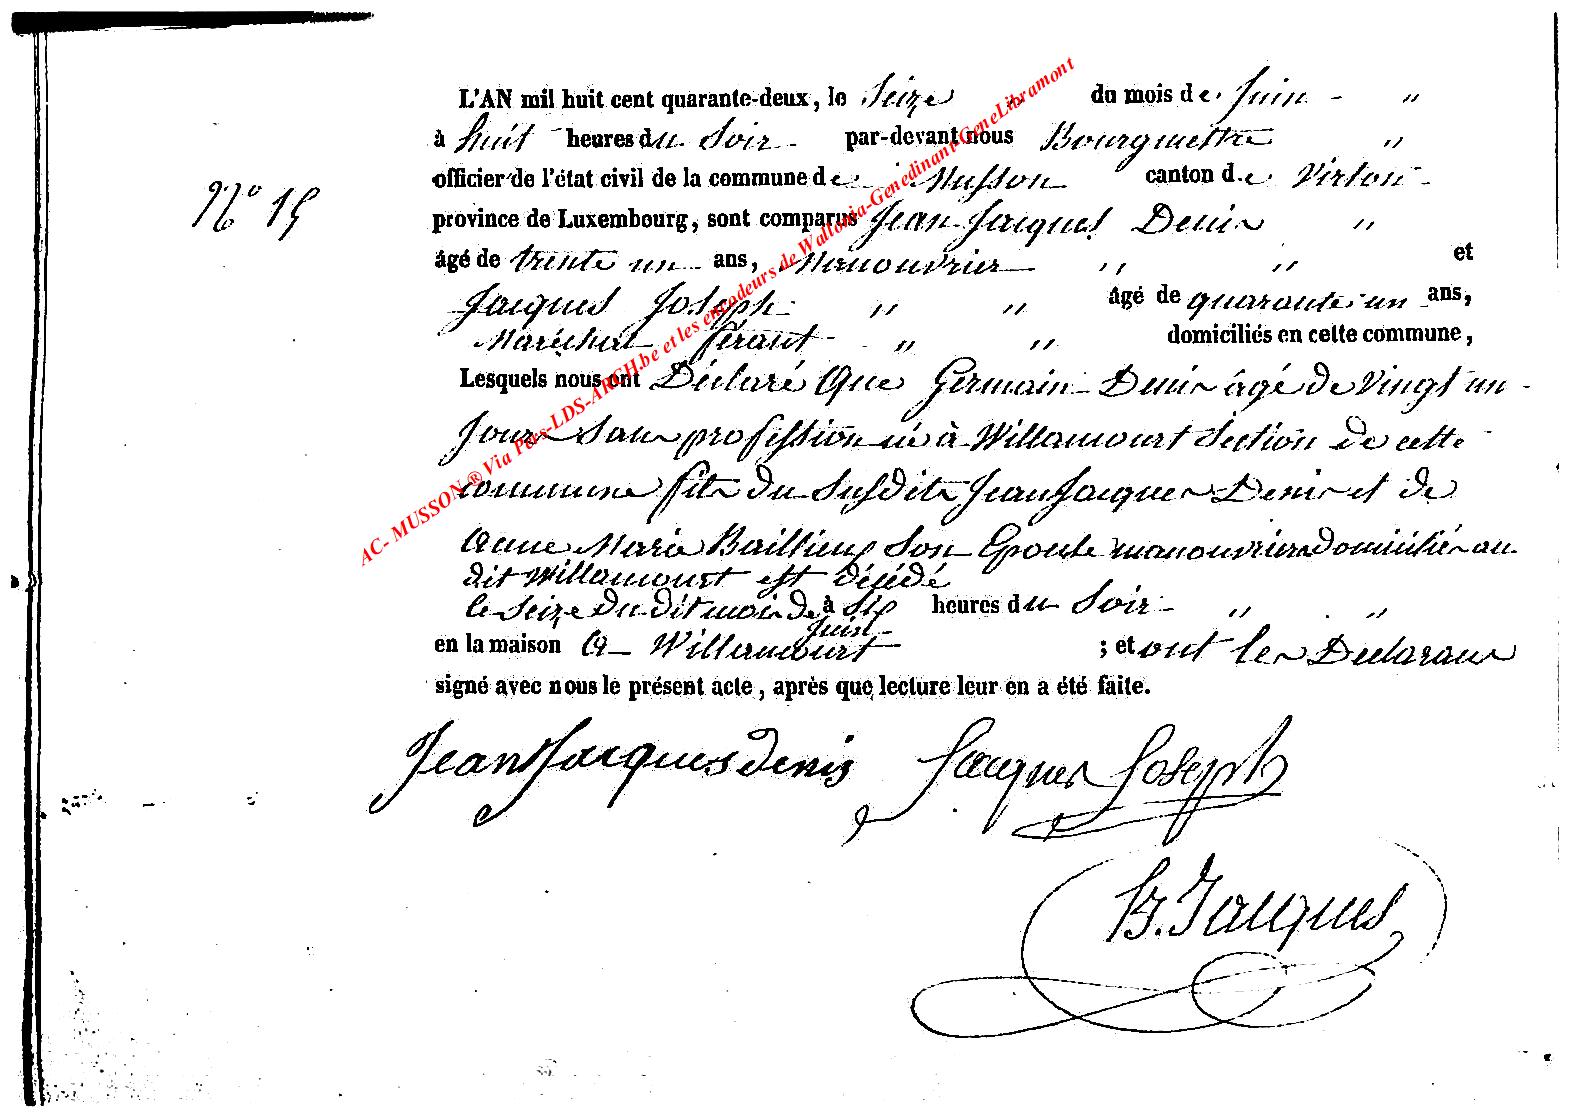 L'AN mil huit cent quarante-deux, le Seize du mois de Juin - "
à huit heures du Soir - par-devant nous Bourgmestre "
officier de l'état civil de la commune de Musson canton de Virton -
N° 15
province de Luxembourg, sont comparus Jean Jacques Denis "
âgé de trente un ans, Manouvrier " " et
Jacques Joseph " " âgé de quarante-un ans,
Maréchal férant " " domiciliés en cette commune,
Lesquels nous ont Déclaré Que Germain Denis âgé de Vingt un -
Jours Sans profession né à Willancourt Section de cette
commune fils du Susdits Jean Jacques Denis et de
Anne Marie Baillieux Son Epouse manouvriers domiciliés au
dit Willancourt est décédé
le Seize du dit mois de à Six heures du Soir - " "
Juin -
en la maison A Willancourt ; et ont les Déclarans
signé avec nous le présent acte, après que lecture leur en a été faite.
Jean Jacques denis Jacques Joseph
B. Jacques
AC- MUSSON ® Via Pers-LDS-ARCH.be et les encodeurs de Wallonia-Genedinant-GeneLibramont